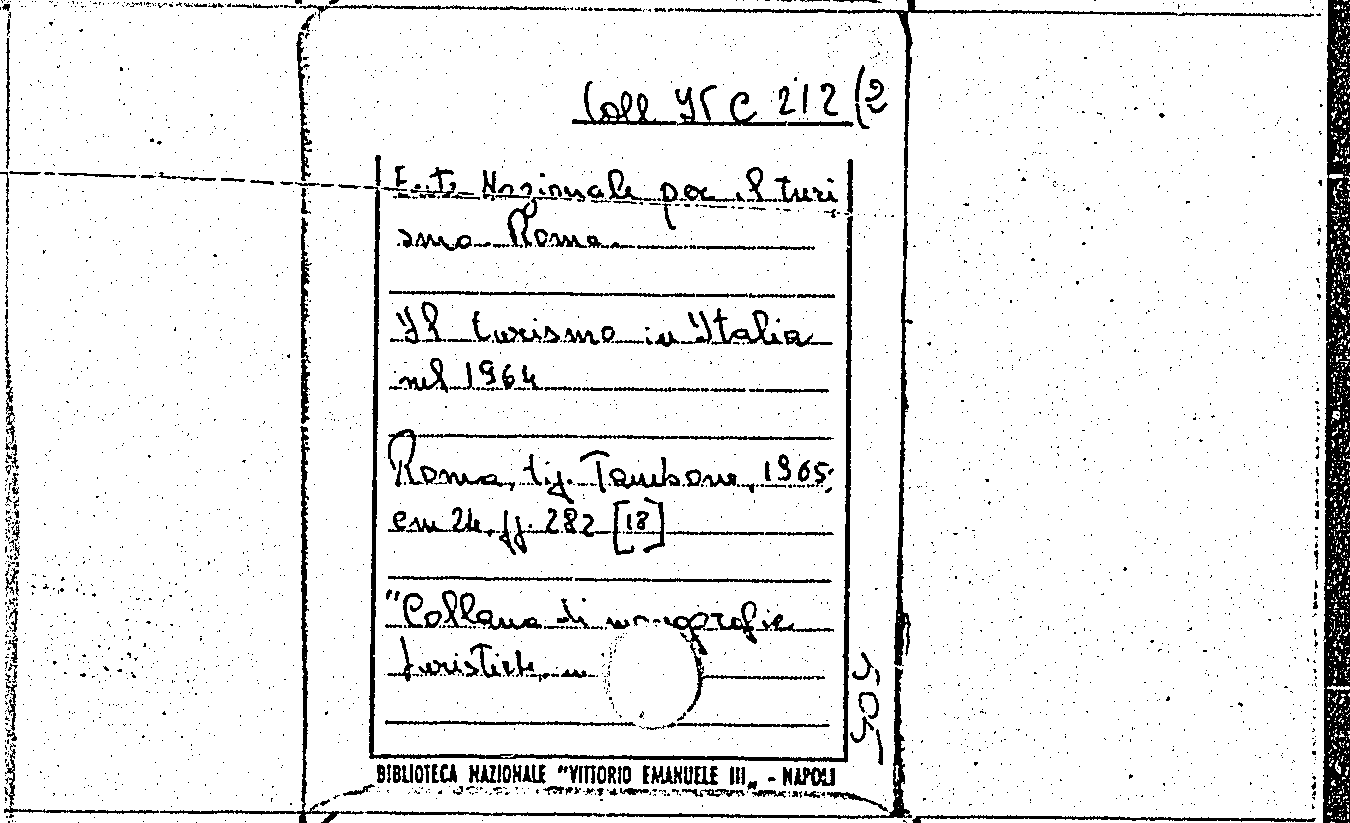 Coll IT C 212 (2
Ente Nazionale per il turi
smo. Roma.
Il turismo in Italia
nel 1964
Roma, tip. Tambone, 1965;
cm 24. pp. 282 [18]
"Collana di monografie
turistiche,
505
BIBLIOTECA NAZIONALE "VITTORIO EMANUELE III„ - NAPOLI